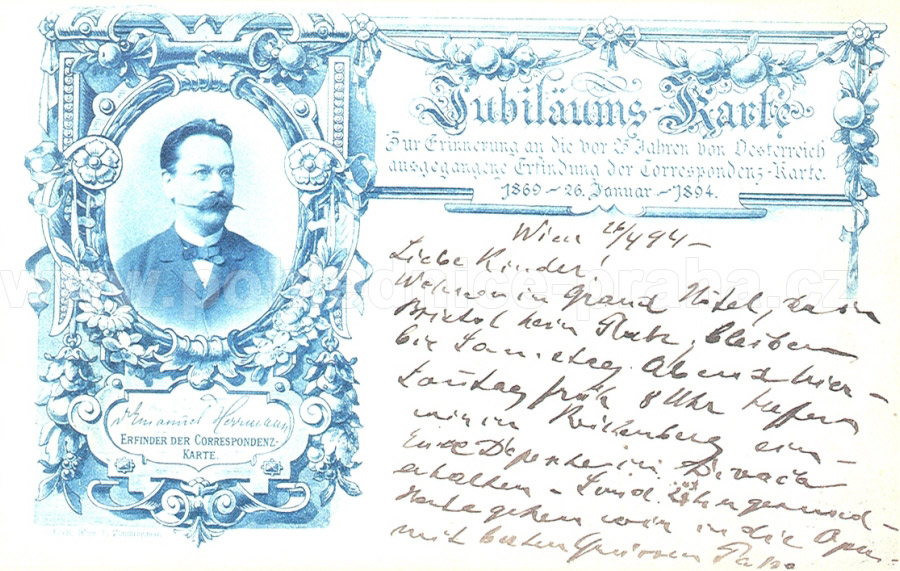 Jubiläums-Karte
Zur Erinnerung an die vor 25 Jahren von Oesterreich
ausgegangene Erfindung der Correspondenz-Karte.
1869 – 26. Januar. – 1894.
Dr Emanuel Herrmann
ERFINDER DER CORRESPONDENZ-
KARTE.
Wien 94 –
Liebe Kinder!
Wohnen in Grand Hôtel, da in
Bristol kein Platz, bleiben
bis Samstag Abend hier –
Sontag früh 8 Uhr treffen
wir in Reichenberg ein –
Eure Depesche in
erhalten – Sind
Heute gehen wir in die Oper
mit besten Grüssen Papa
www.pohlednice-praha.cz